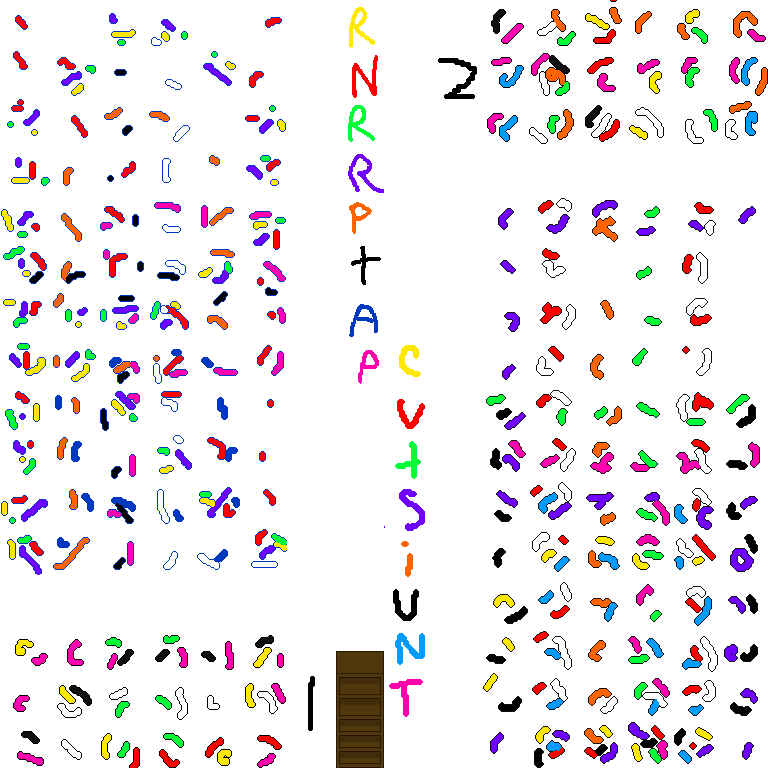 R
N
R
R
P
t
A
P
C
V
t
S
i
U
N
T
2
1